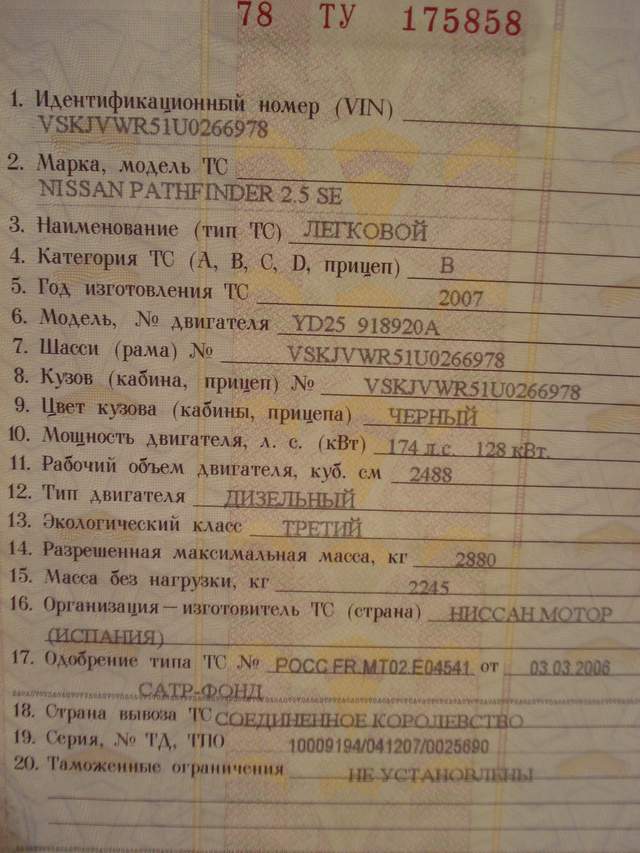 78 ТУ 175858
1. Идентификационный номер (VIN)
VSKJVWR51U0266978
2. Марка, модель ТС
NISSAN PATHFINDER 2.5 SE
3. Наименование (тип ТС) ЛЕГКОВОЙ
4. Категория ТС (A, B, C, D, прицеп) B
5. Год изготовления ТС 2007
6. Модель, № двигателя YD25 918920A
7. Шасси (рама) № VSKJVWR51U0266978
8. Кузов (кабина, прицеп) № VSKJVWR51U0266978
9. Цвет кузова (кабины, прицепа) ЧЕРНЫЙ
10. Мощность двигателя, л. с. (кВт) 174 л.с. 128 кВт.
11. Рабочий объем двигателя, куб. см 2488
12. Тип двигателя ДИЗЕЛЬНЫЙ
13. Экологический класс ТРЕТИЙ
14. Разрешенная максимальная масса, кг 2880
15. Масса без нагрузки, кг 2245
16. Организация — изготовитель ТС (страна) НИССАН МОТОР
(ИСПАНИЯ)
17. Одобрение типа ТС № РОСС FR.МТ02.Е04541 от 03.03.2006
САТР-ФОНД
18. Страна вывоза ТС СОЕДИНЕННОЕ КОРОЛЕВСТВО
19. Серия, № ТД, ТПО 10009194/041207/0025690
20. Таможенные ограничения НЕ УСТАНОВЛЕНЫ